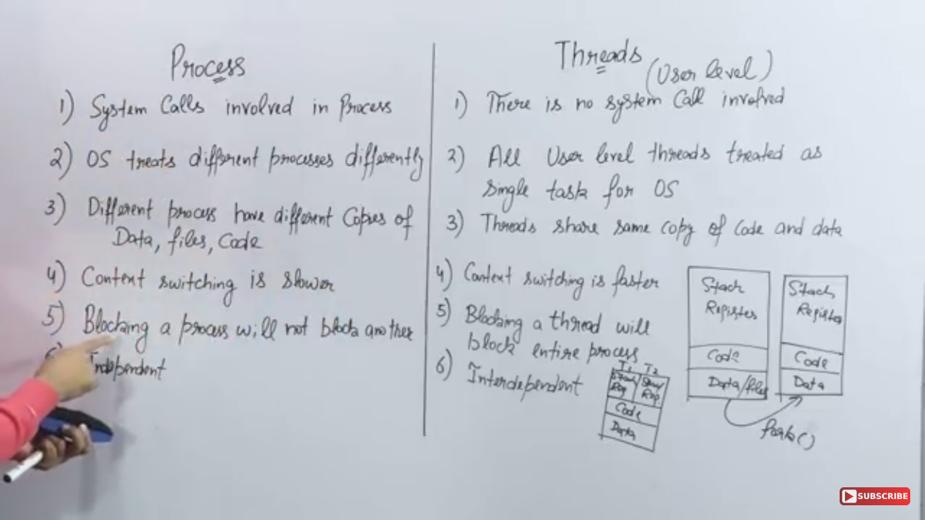 Process
1) System Calls involved in Process
2) OS treats different processes differently
3) Different process have different Copies of
Data, files, Code
4) Context switching is slower
5) Blocking a process will not block another
Independent
Threads
(User level)
1) There is no system Call involved
2) All User level threads treated as
single task for OS
3) Threads share same copy of code and data
4) Context switching is faster
5) Blocking a thread will
block entire process
6) Interdependent
T1 T2
Stack Stack
Reg Reg.
Code
Data
Stack
Registers
Code
Data/files
Stack
Register
Code
Data
fork()
SUBSCRIBE